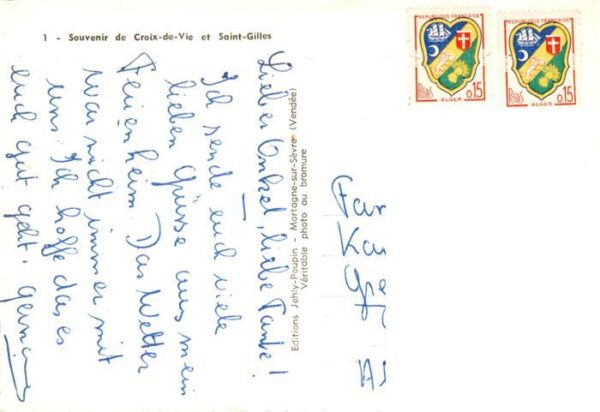 1 - Souvenir de Croix-de-Vie et Saint-Gilles
Lieber Onkel, liebe Tante!
Ich sende euch viele
lieben Grüsse aus mein
Ferienheim. Das Wetter
war nicht immer mit
uns. Ich hoffe das es
euch gut geht.
Editions Jehly-Poupin - Mortagne-sur-Sèvre (Vendée)
Véritable photo au bromure
REPUBLIQUE FRANÇAISE
Postes
0.15
ALGER
REPUBLIQUE FRANÇAISE
Postes
0.15
ALGER
Fam
Kar
Gre